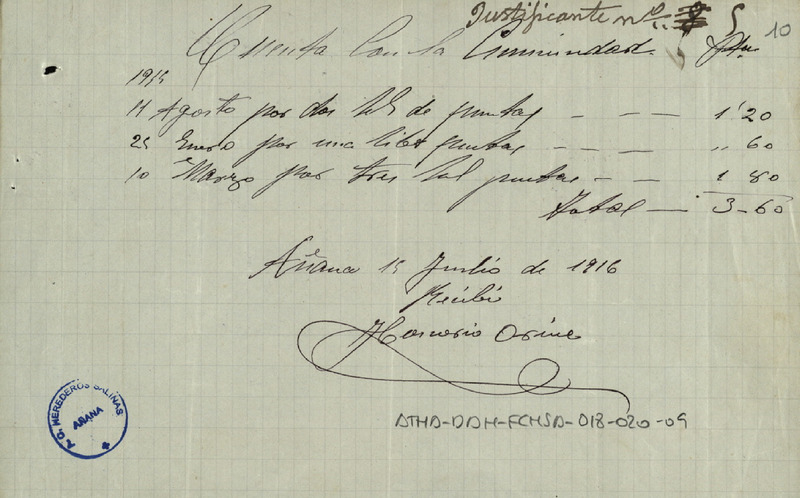 Justificante nº 5
10
Cuenta con la Comunidad. Ptas
1915
11 Agosto por dos lbs de puntas - - - 1'20
25 Enero por una libra puntas - - - - " 60
10 Marzo por tres puntas - - - 1 80
Total - 3-60
Añana 15 Junlio de 1916
Recibi
Honorio
A.G. HEREDEROS SALINAS
AÑANA
ATHA-DAH-FCHSA-018-020-09